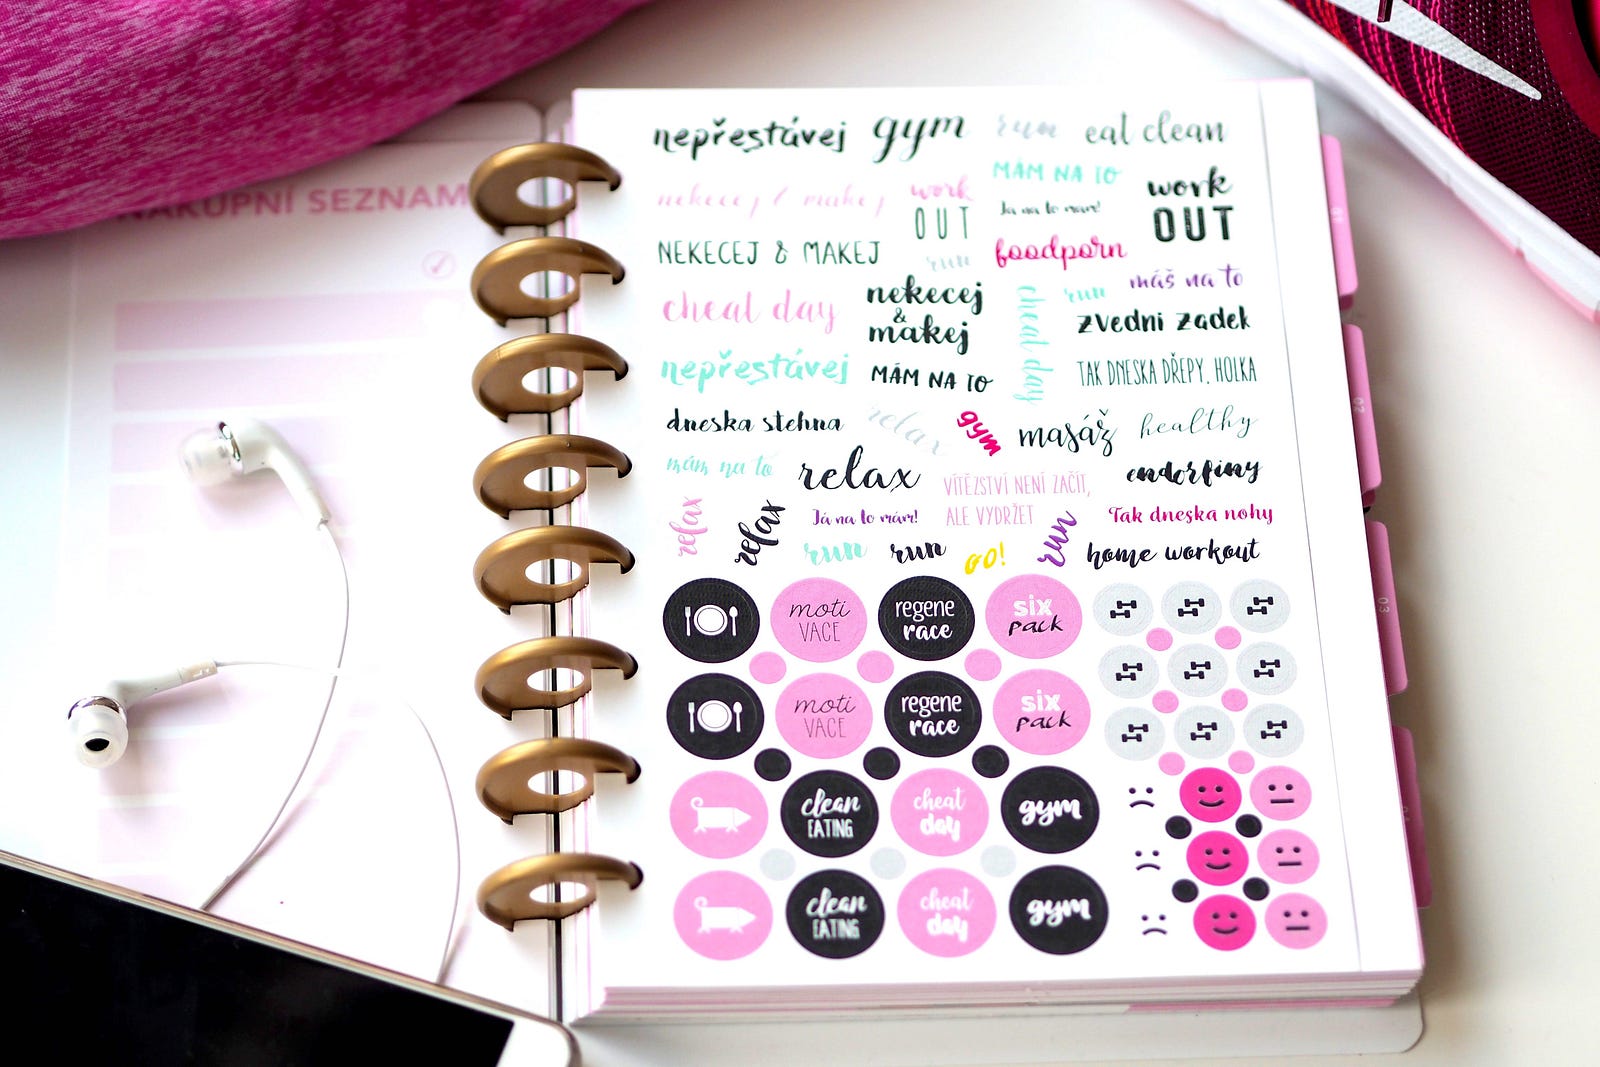 NÁKUPNÍ SEZNAM
nepřestávej gym run eat clean
MÁM NA TO
nekecej & makej work OUT Já na to mám! work OUT
NEKECEJ & MAKEJ run foodporn
máš na to
cheal day nekecej & makej cheat day run zvedni zadek
nepřestávej MÁM NA TO TAK DNESKA DŘEPY, HOLKA
dneska stehna relax gym masáž healthy
mám na to relax VÍTĚZSTVÍ NENÍ ZAČÍT, endorfiny
relax relax Já na to mám! ALE VYDRŽET run Tak dneska nohy
run run GO! home workout
moti VACE regene race six pack
moti VACE regene race six pack
clean EATING cheat day gym
clean EATING cheat day gym
01
02
03